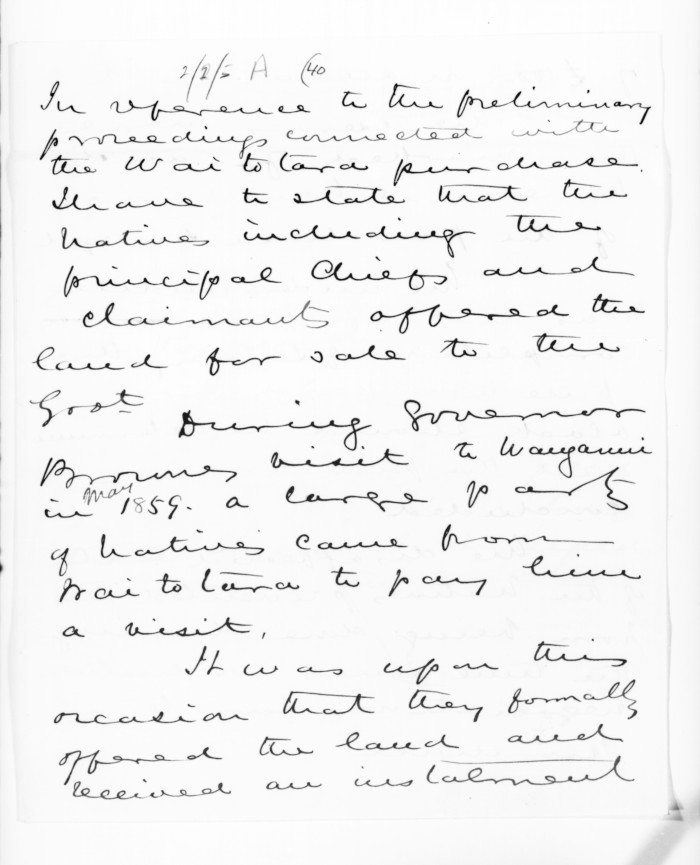 2/2/5 A (40
In reference to the preliminary
proceedings connected with
the Wai to tara purchase.
I have to state that the
Natives including the
principal Chiefs and
claimants offered the
land for sale to the
Govt During Governor
Brownes visit to Wanganui
in May 1859. a large party
of Natives came from
Wai to tara to pay him
a visit.
It was upon this
occasion that they formally
offered the land and
received an instalment